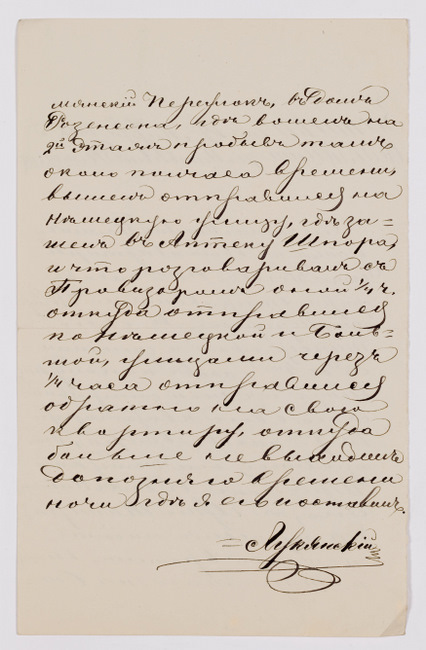 мянскій Переулокъ, въ домъ
Розенсона, гдѣ вошелъ на
2й Этажъ пробывъ тамъ
около получаса времени,
вышелъ отправился на
Нѣмецкую улицу, гдѣ за=
шелъ въ Аптеку Шпора,
и что розговаривалъ съ
Провизоромъ оной 1/4 ч.
откуда отправился
по Нѣмецкой и Боль=
шой, улицами черезъ
1/4 часа отправился
обратно на свою
квартиру, откуда
больше не выходилъ
до поздняго времени
ночи гдѣ я его и оставилъ.
= Лукянскій